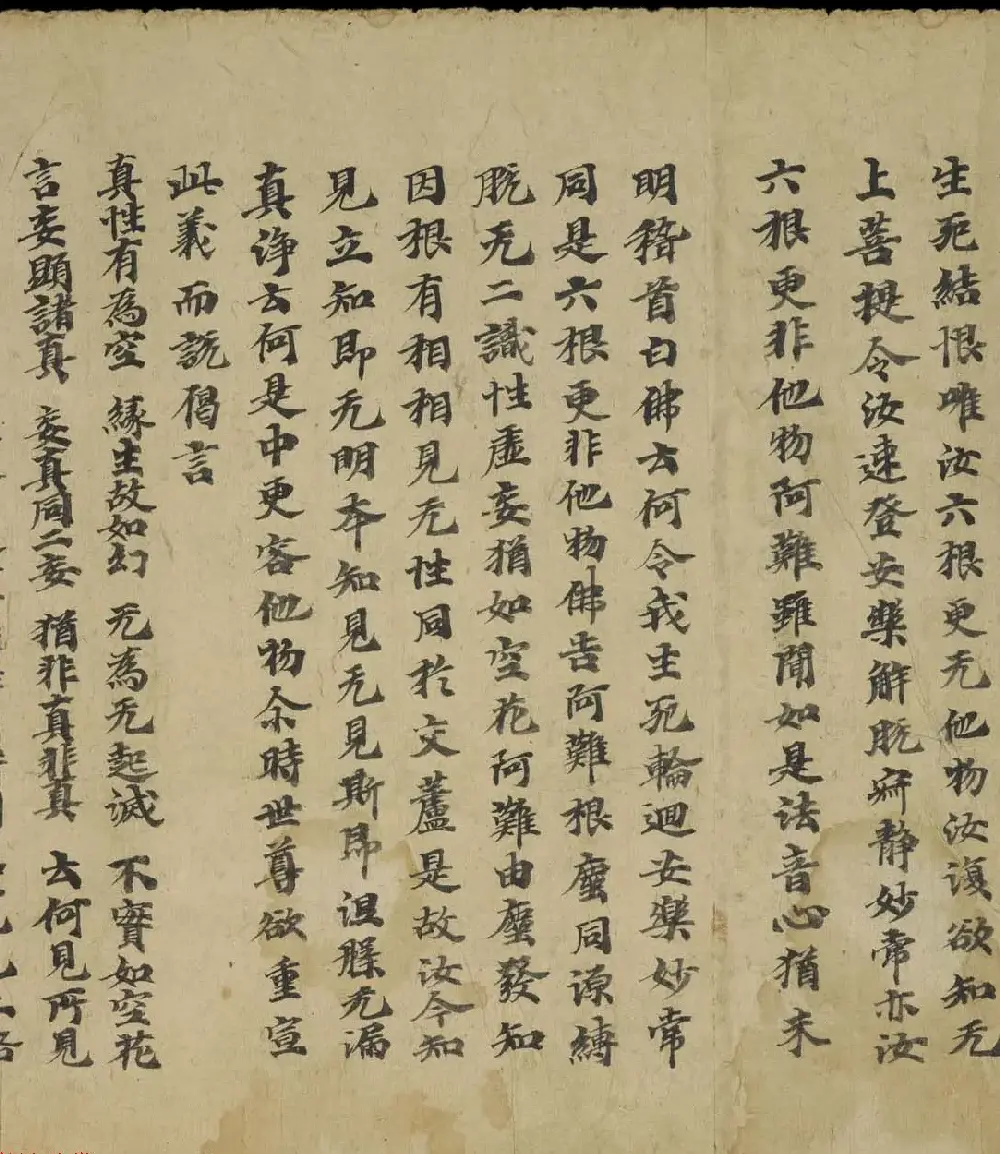 生死結恨唯汝六根更无他物汝復欲知无
上菩提令汝速登安樂解脫寂静妙常亦汝
六根更非他物阿難雖聞如是法音心猶未
明稽首白佛云何令我生死輪迴安樂妙常
同是六根更非他物佛告阿難根塵同源縛
脫无二識性虛妄猶如空花阿難由塵發知
因根有相相見无性同於交蘆是故汝今知
見立知即无明本知見无見斯即涅槃无漏
真淨云何是中更容他物尒時世尊欲重宣
此義而說偈言
真性有為空 緣生故如幻 无為无起滅 不實如空花
言妄顯諸真 妄真同二妄 猶非真非真 云何見所見